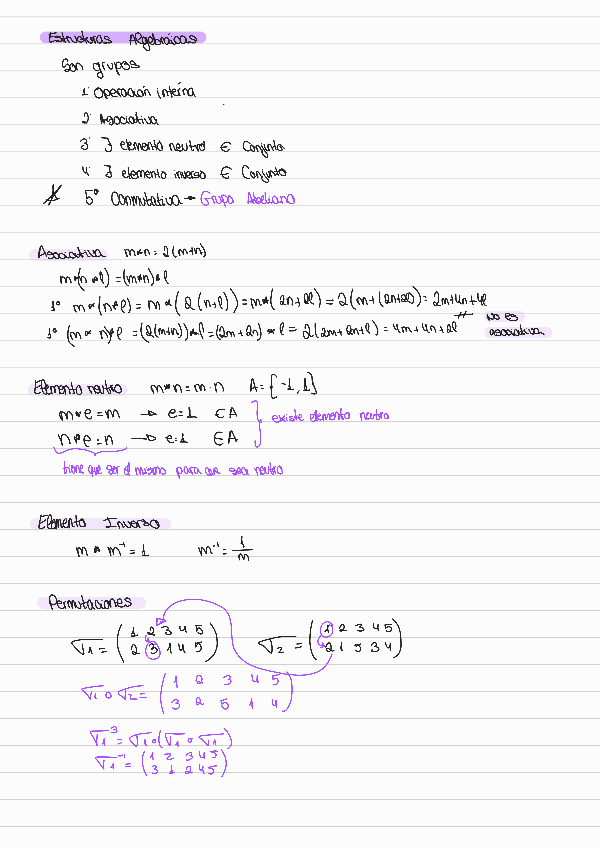 Estructuras Algebraicas
Son grupos
1º Operación interna
2º Asociativa
3º ∃ elemento neutro ∈ Conjunto
4º ∃ elemento inverso ∈ Conjunto
5º Conmutativa → Grupo Abeliano
Asociativa m*n = 2(m+n)
m*(n*l) = (m*n)*l
1º m*(n*l) = m*(2(n+l)) = m*(2n+2l) = 2(m+(2n+2l)) = 2m+4n+4l
1º (m*n)*l = (2(m+n))*l = (2m+2n)*l = 2(2m+2n+l) = 4m+4n+2l
No es
asociativa
Elemento neutro m*n = m·n A = {-1,1}
m*e = m → e=1 ∈ A
n*e = n → e=1 ∈ A
existe elemento neutro
tiene que ser el mismo para que sea neutro
Elemento Inverso
m * m⁻¹ = 1 m⁻¹ = 1/m
Permutaciones
σ1 = (1 2 3 4 5 σ2 = (1 2 3 4 5
2 3 1 4 5) 2 1 5 3 4)
σ1 ∘ σ2 = (1 2 3 4 5
3 2 5 1 4)
σ1³ = σ1∘(σ1 ∘ σ1)
σ1⁻¹ = (1 2 3 4 5
3 1 2 4 5)